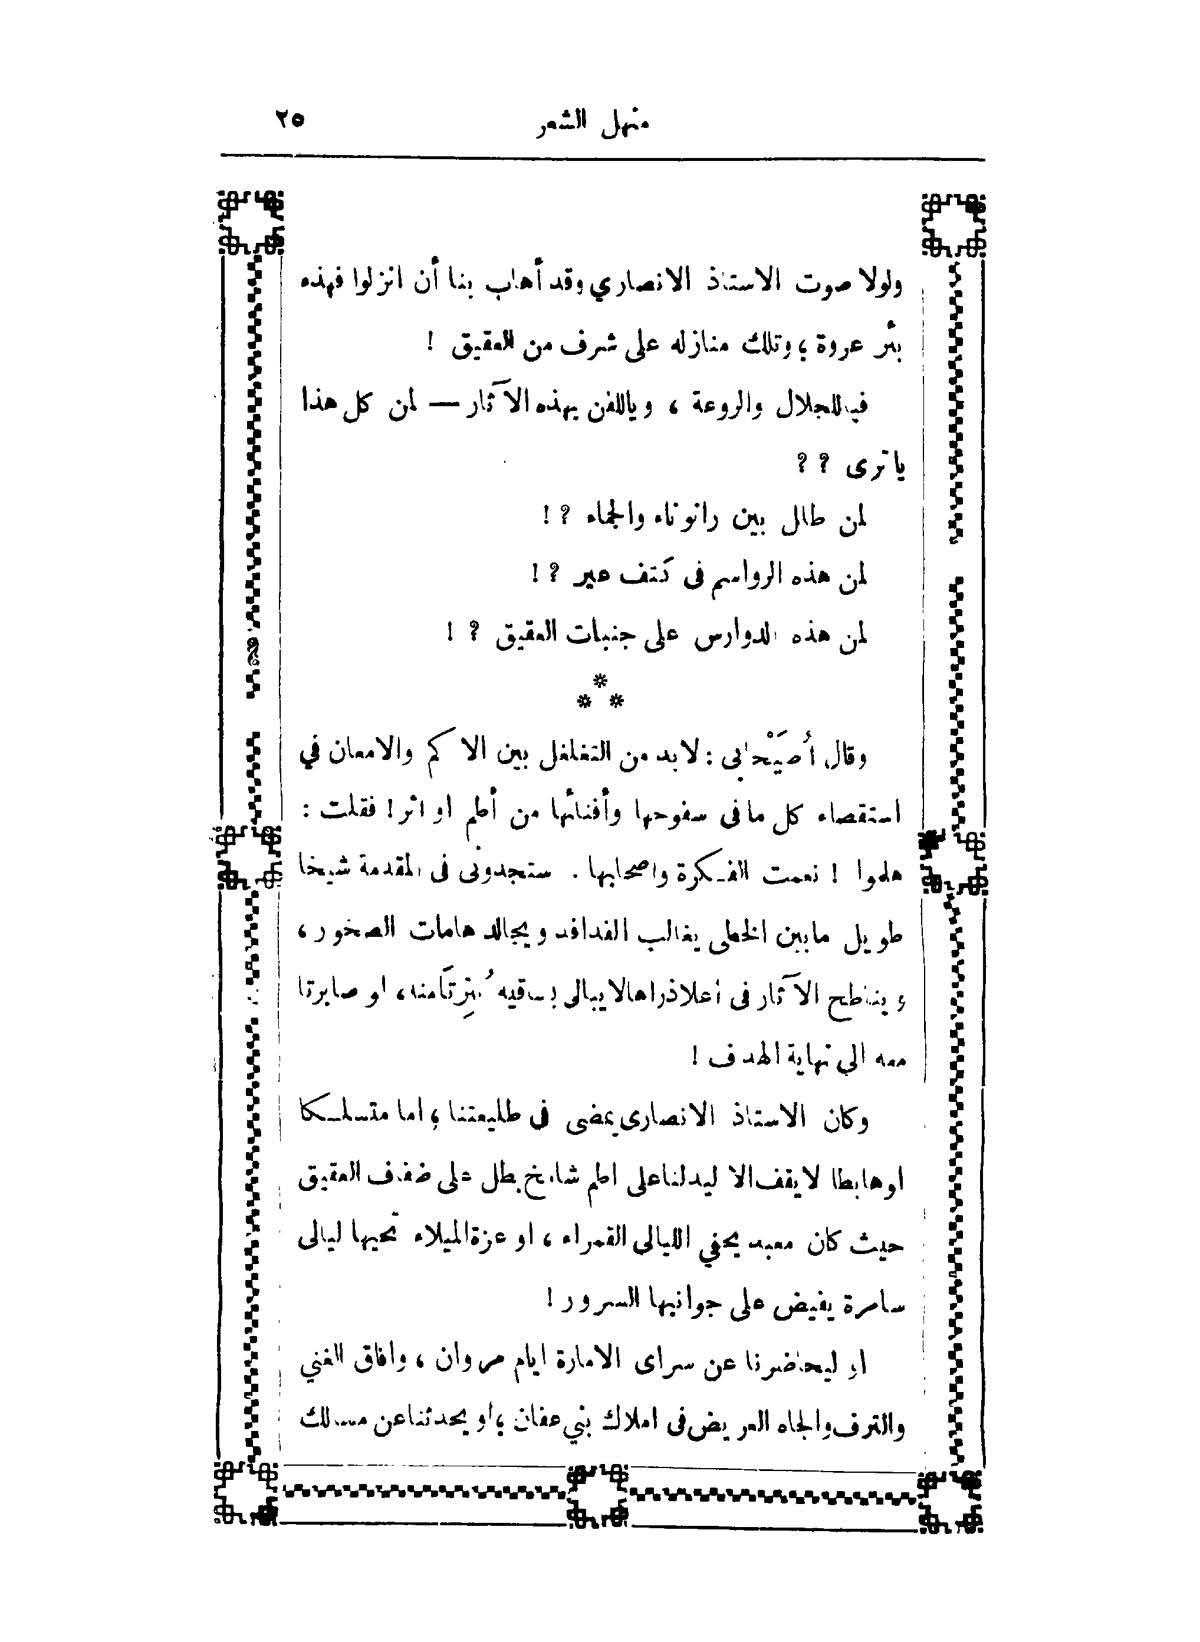 منهل الشعر ٢٥
ولولا صوت الاستاذ الانصاري وقد أهاب بنا أن انزلوا فهذه
بئر عروة ، وتلك منازله على شرف من العقيق !
فياللجلال والروعة ، وياللفن بهذه الآثار — لمن كل هذا
ياترى ؟ ؟
لمن طلل بين رانوناء والجماء ؟ !
لمن هذه الرواسم فى كتف عير ؟ !
لمن هذه الدوارس على جنبات العقيق ؟ !
***
وقال أُصَيْحابى : لابد من التغلغل بين الاكم والامعان في
استقصاء كل مافى سفوحها وأفنائها من أطم او اثر ! فقلت :
هلموا ! نعمت الفكرة واصحابها . ستجدونى فى المقدمة شيخا
طويل مابين الخطى يغالب الفدافد ويجالد هامات الصخور ،
ويناطح الآثار فى أعلاذراها لايبالى بساقيه اُبنِزتَامنه ، او صابرتا
معه الى نهاية الهدف !
وكان الاستاذ الانصارى يمضى فى طليعتنا ، اما متسلكا
اوهابطا لايقف الا ليدلناعلى اطم شامخ يطل على ضفاف العقيق
حيث كان معبد يحفي الليالى القمراء ، او عزة الميلاء تحيها ليالى
سامرة يفيض على جوانبها السرور !
او ليحاضرنا عن سراى الامارة ايام مروان ، وافاق الغني
والترف والجاه العريض فى املاك بني عفان ، او يحدثنا عن مسالك